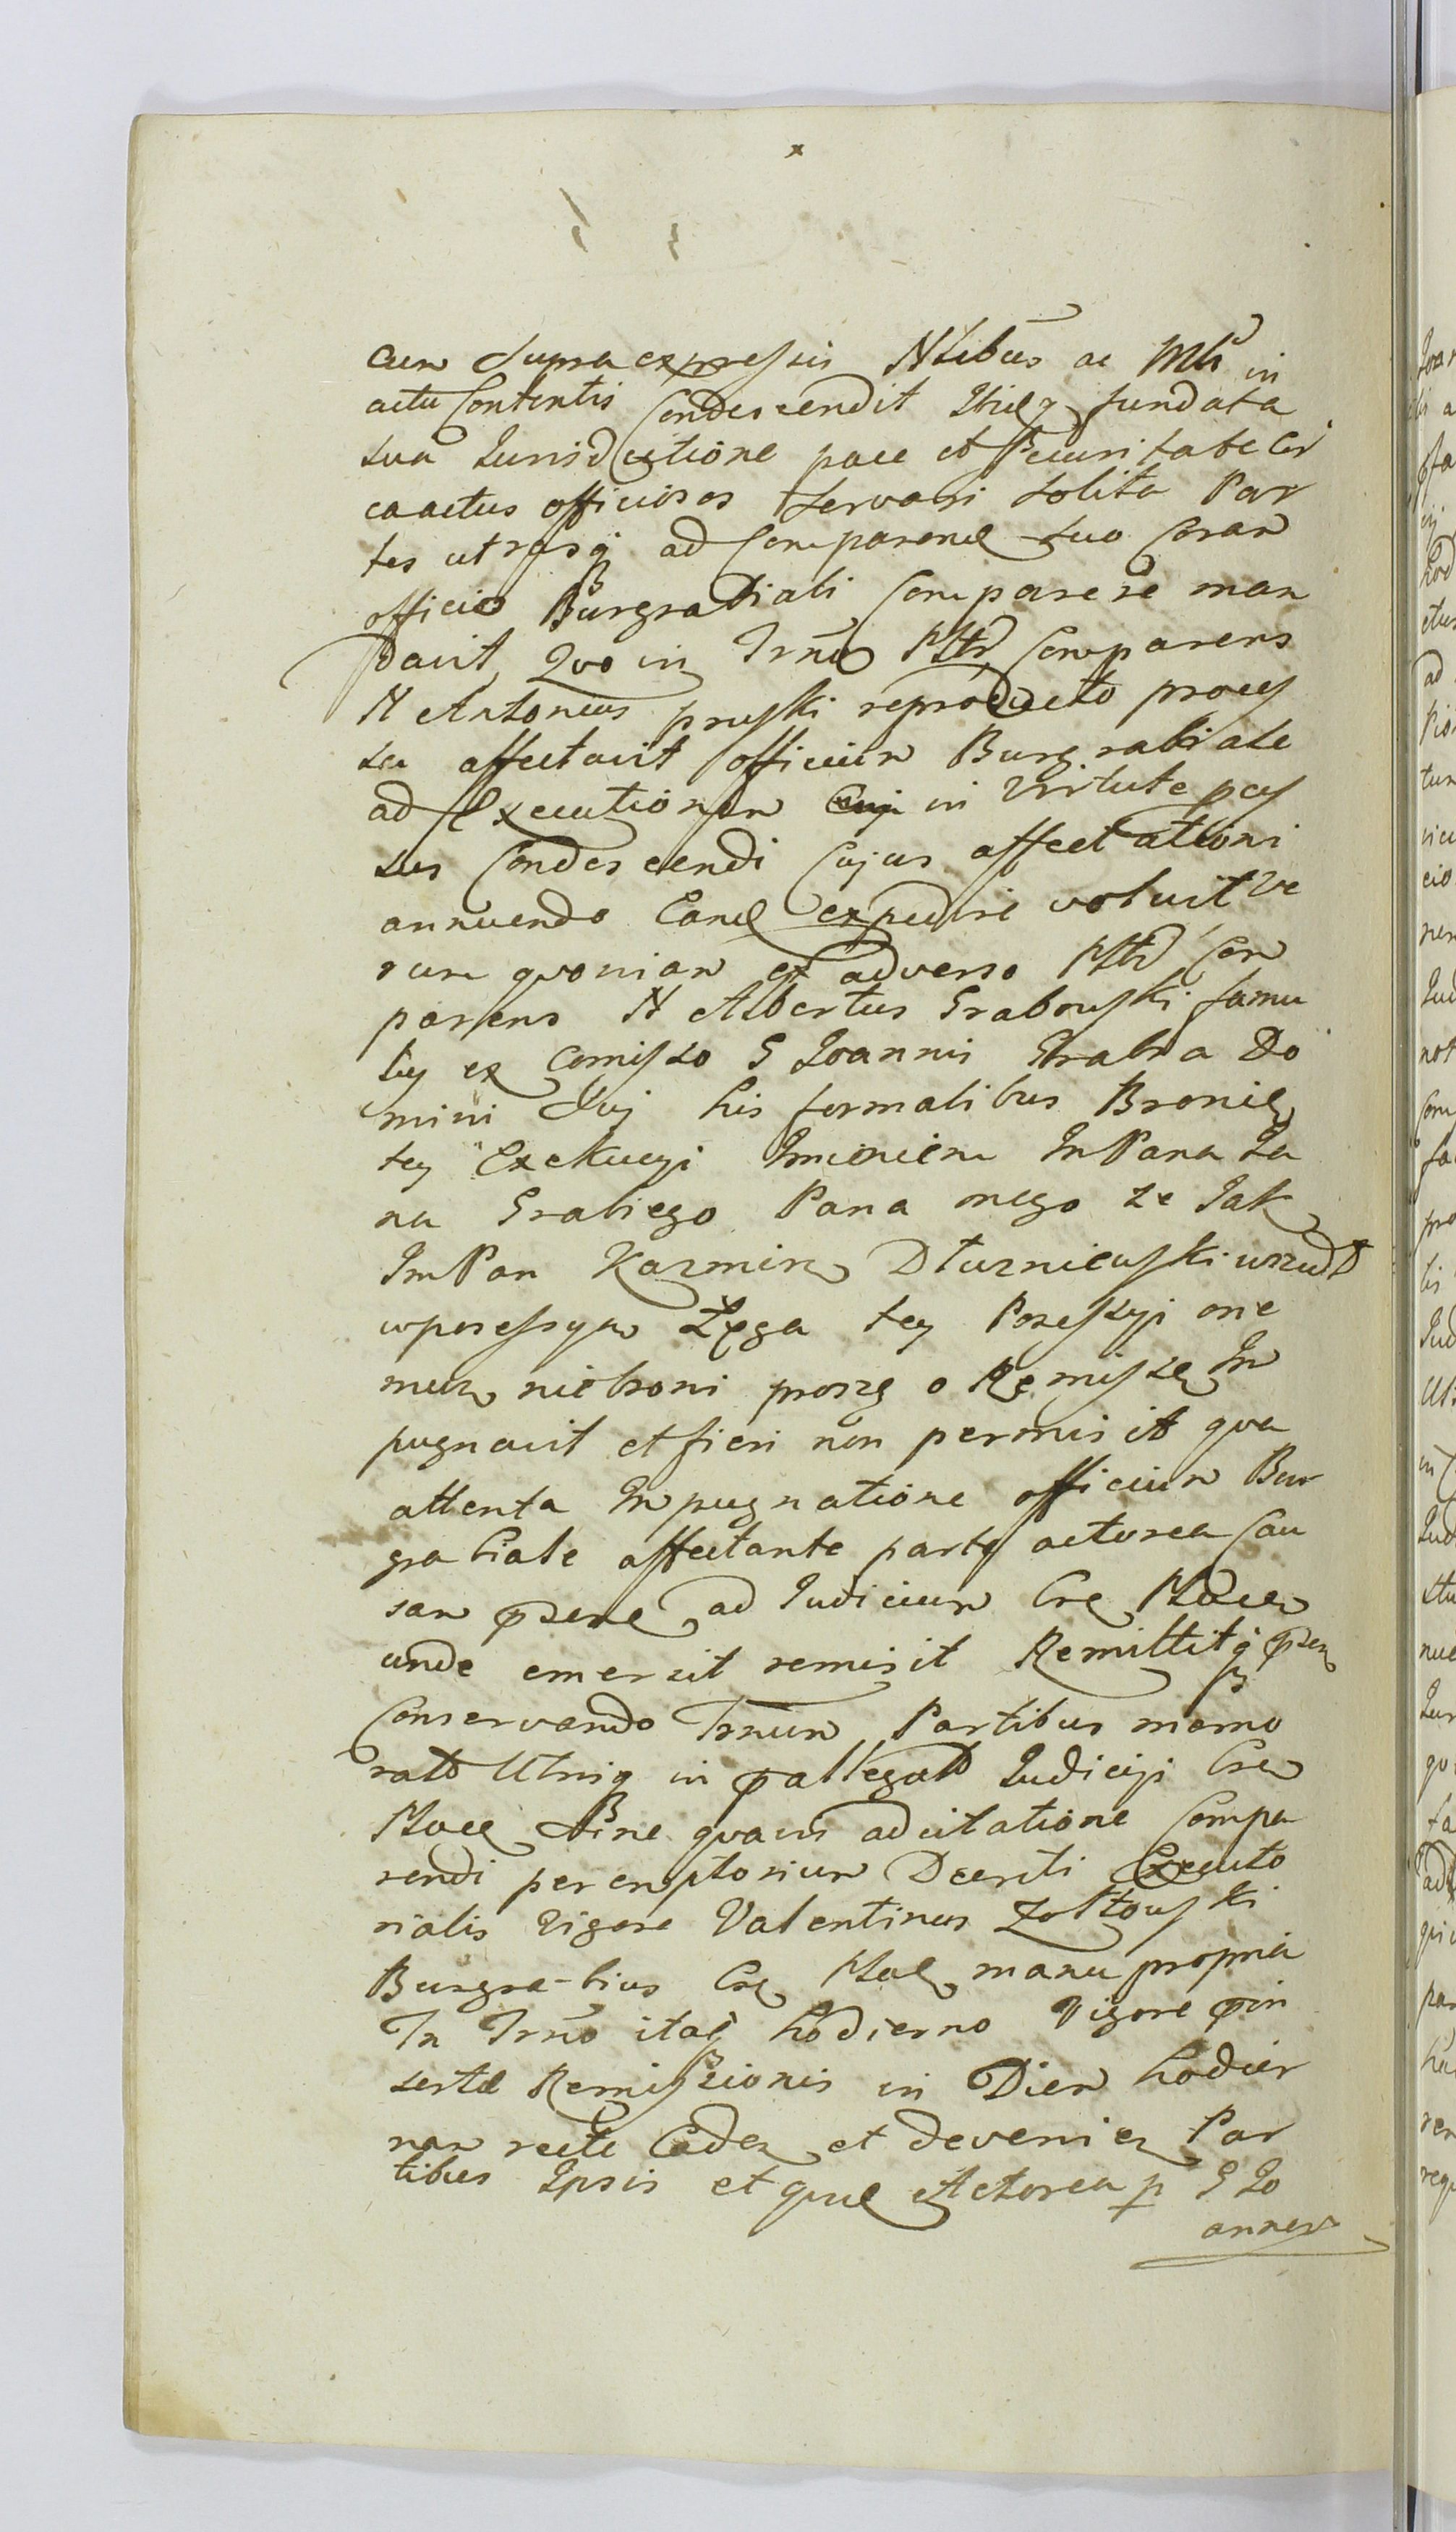 cum supra expressis Nlibus ac Mli in
actu Contentis Condescendit Ibiq fundata
sua Iurisdictione pace et securitate cir
ca actus officiosos servari solita Par
tes utrasq ad Comparend suo Coram
officio Burgrabiali Comparere man
davit Quo in Trno Pltr Comparens
N Antonius pruski reproducto proces
su affectavit officium Burgrabiale
ad Executionem in Virtute pces
sus Condescendi Cujus affectationi
annuendo Eand expedire voluit Ve
rum quoniam ex adverso Pltr Com
parens N Albertus Grabowski famu
lus ex Comisso G Joannis Grabia Do
mini Sui his formalibus Bronię
tey Exekucyi Imieniem JmPana Ja
na Grabiego Pana mego ze Jak
JmPan Kazmirz Dłuzniewski wszedł
w posessyą Łęga tey Posessyi one
muz niebroni proszę o Remissę Im
pugnavit et fieri non permisit qua
attenta Impugnatione officium Bur
grabiale affectante parte actorea Cau
sam psene ad Iudicium Cre
unde emersit remisit Remittitq psen
Conservando Trnum Partibus memo
rat Utrisq in pallegat Iudicij Cre
sine quavis adcitatione Compa
rendi peremptorium Decreti Executo
rialis Vigore Valentinus Zołtowski
Burgra-bius Cre manu propria
In Trno itaq hodierno Vigore pin
sertæ Remissionis in Diem hodier
nam recte Caden et devenien Par
tibus Ipsis et quid Actorea p G Jo
annem